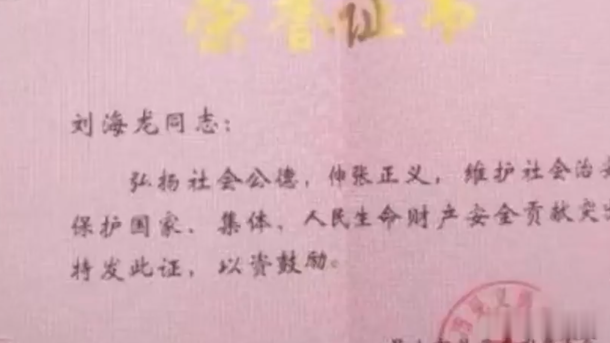 荣誉证书
刘海龙同志：
弘扬社会公德，伸张正义，维护社会治安
保护国家、集体、人民生命财产安全贡献突出
特发此证，以资鼓励。